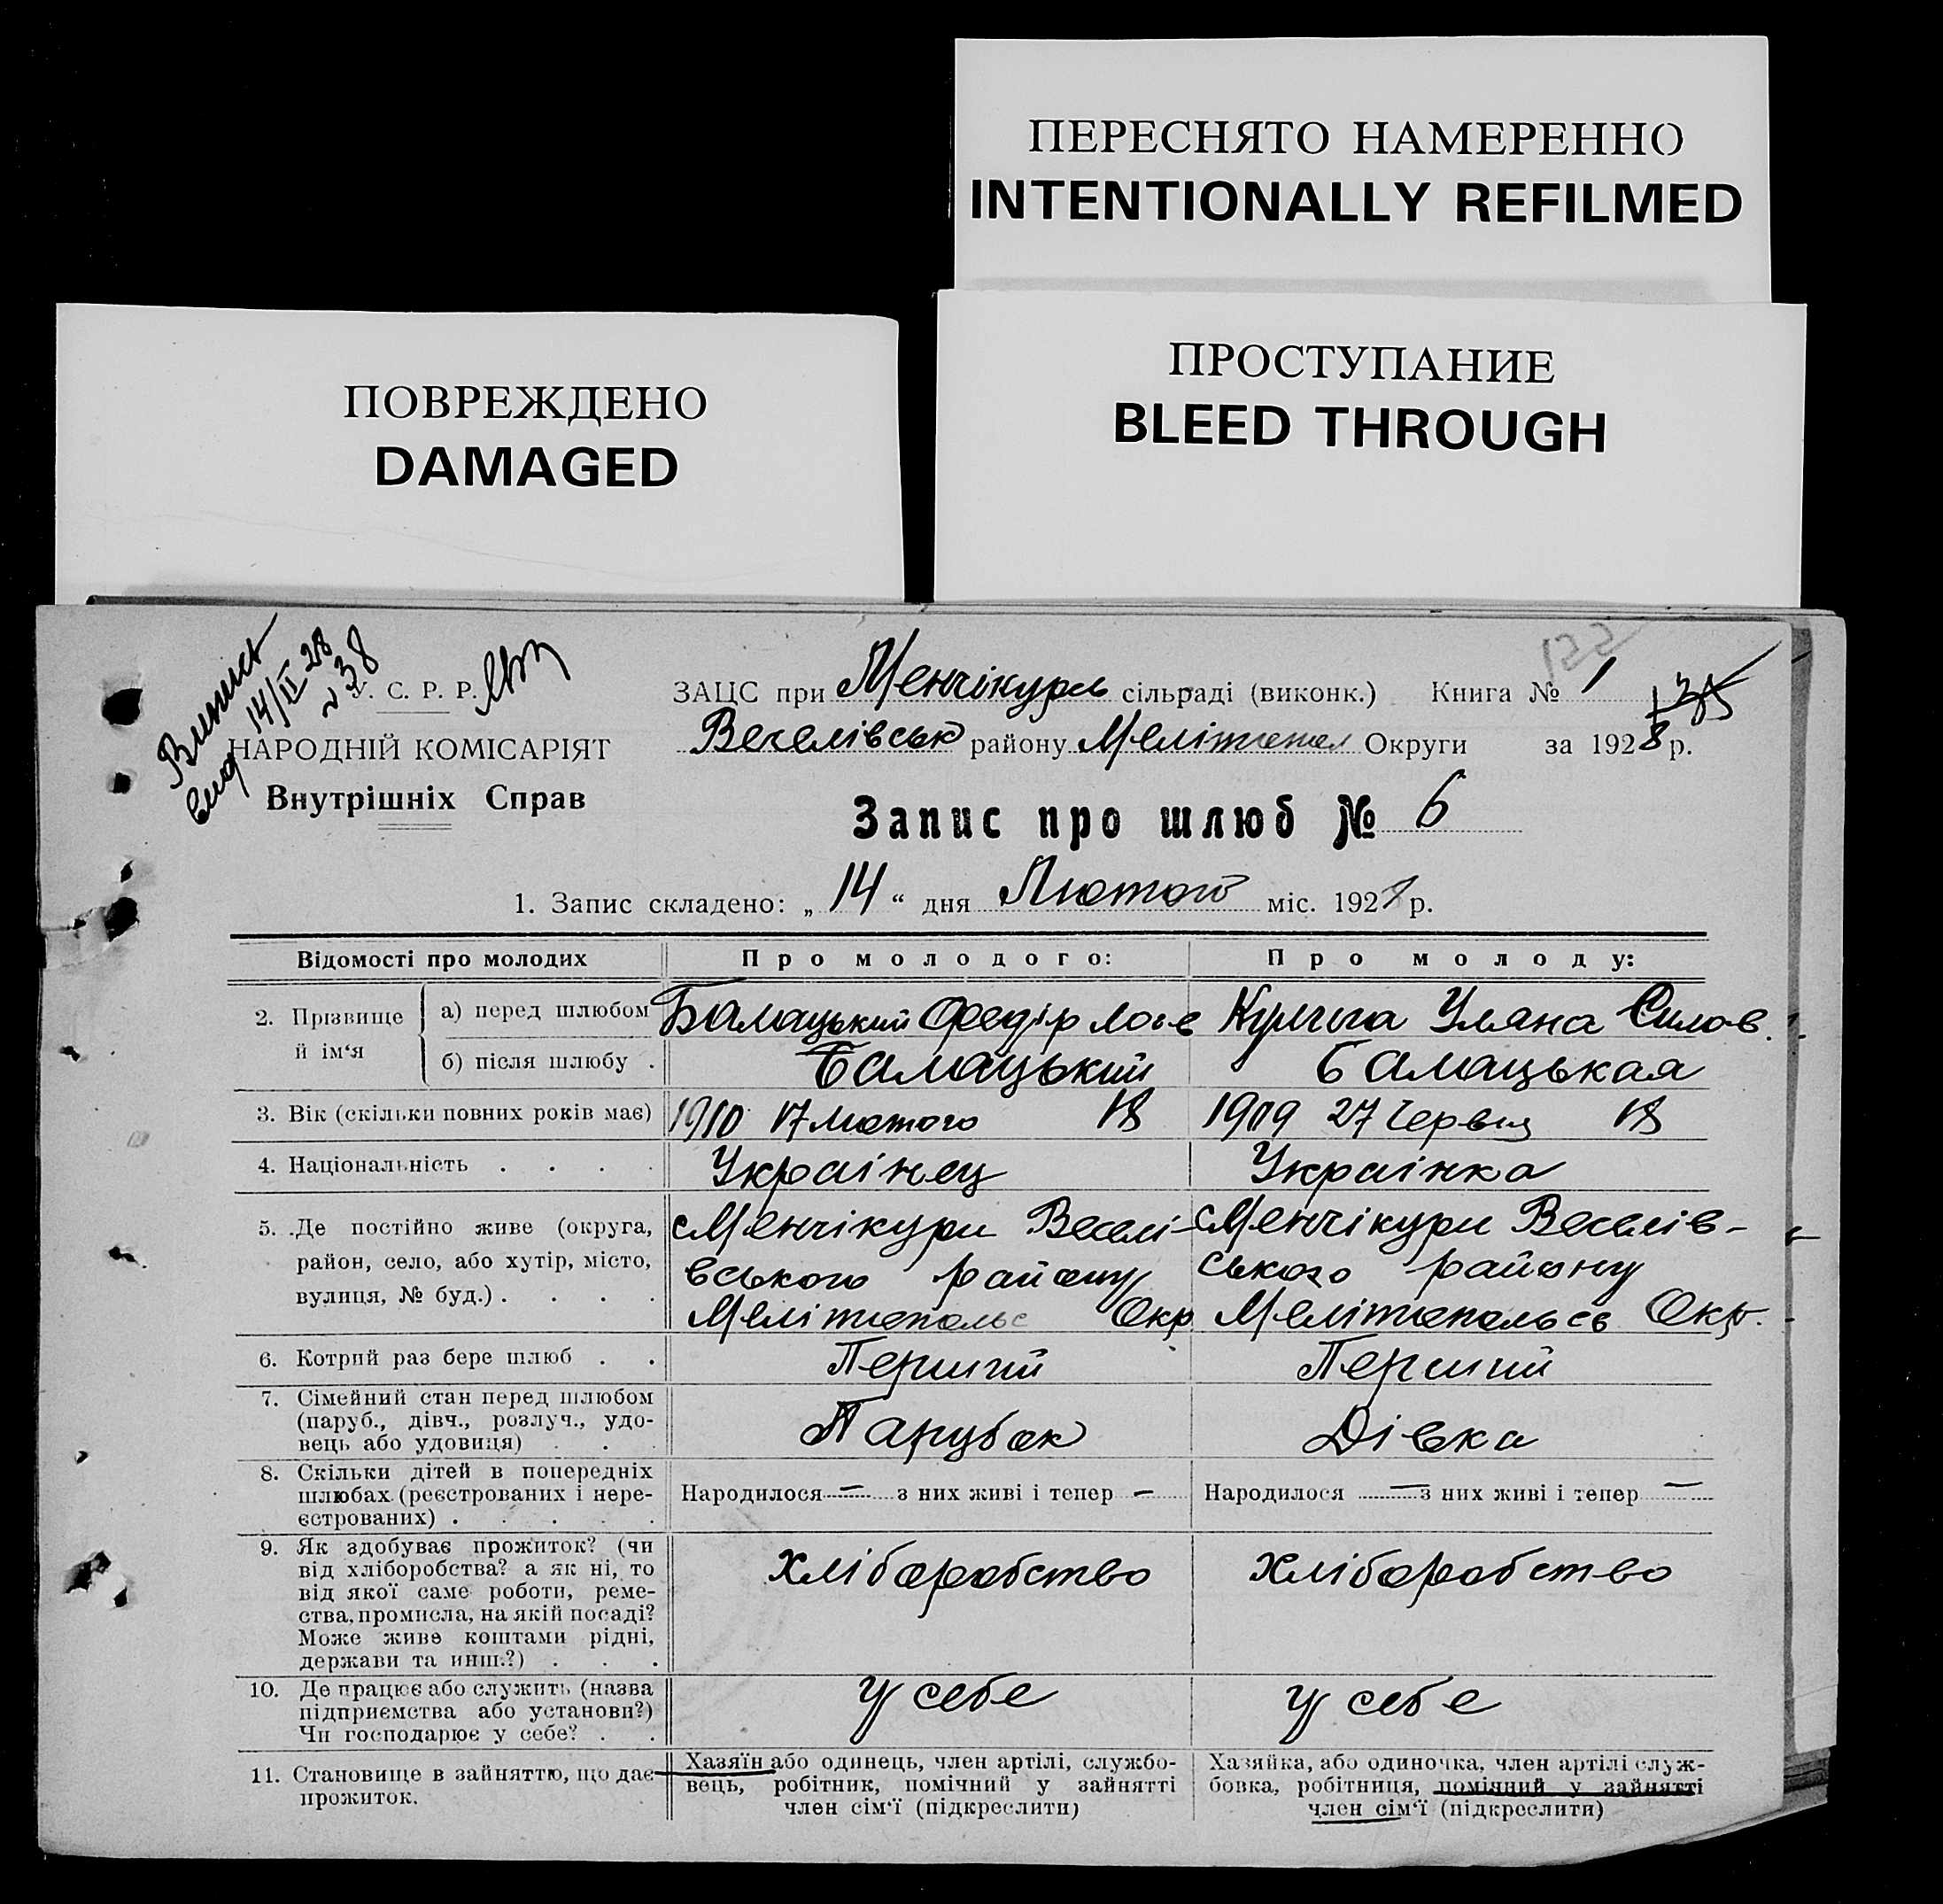 ПЕРЕСНЯТО НАМЕРЕННО
INTENTIONALLY REFILMED
ПОВРЕЖДЕНО
DAMAGED
ПРОСТУПАНИЕ
BLEED THROUGH
14/II 28
№ 38
122
У. С. Р. Р.
НАРОДНІЙ КОМІСАРІЯТ
Внутрішніх Справ
ЗАЦС при Менчікури сільраді (виконк.) Книга № 1
Веселівськ района Мелітопол Округи за 1928 р.
Запис про шлюб № 6
1. Запис складено: „ 14 “ дня Лютого міс. 1928 р.
Відомості про молодих
Про молодого:
Про молоду:
2. Прізвище й ім‘я
а) перед шлюбом
Балацький Федір
Уляна Силов.
б) після шлюбу .
Балацький
Балацькая
3. Вік (скільки повних років має)
1910 17 Лютого 18
1909 27 Червця 18
4. Національність . . . .
Українец
Українка
5. Де постійно живе (округа,
район, село, або хутір, місто,
вулиця, № буд.) . . . .
с Менчікури Веселі-
вського району
Мелітопольс Окр
с Менчікури Веселів-
ського району
Мелітопольсь Окр.
6. Котрий раз бере шлюб . .
Перший
Перший
7. Сімейний стан перед шлюбом
(паруб., дівч., розлуч., удо-
вець або удовиця) . . .
Парубок
Дівка
8. Скільки дітей в попередніх
шлюбах (реєстрованих і нере-
єстрованих) . . . . .
Народилося — з них живі і тепер —
Народилося — з них живі і тепер —
9. Як здобуває прожиток? (чи
від хліборобства? а як ні, то
від якої саме роботи, реме-
ства, промисла, на якій посаді?
Може живе коштами рідні,
держави та инш.?) . . .
Хліборобство
Хліборобство
10. Де працює або служить (назва
підприємства або установи?)
Чи господарює у себе? . .
У себе
У себе
11. Становище в зайняттю, що дає
прожиток.
Хазяїн або одинець, член артілі, службо-
вець, робітник, помічний у зайнятті
член сім‘ї (підкреслити)
Хазяйка, або одиночка, член артілі служ-
бовка, робітниця, помічний у зайнятті
член сім‘ї (підкреслити)